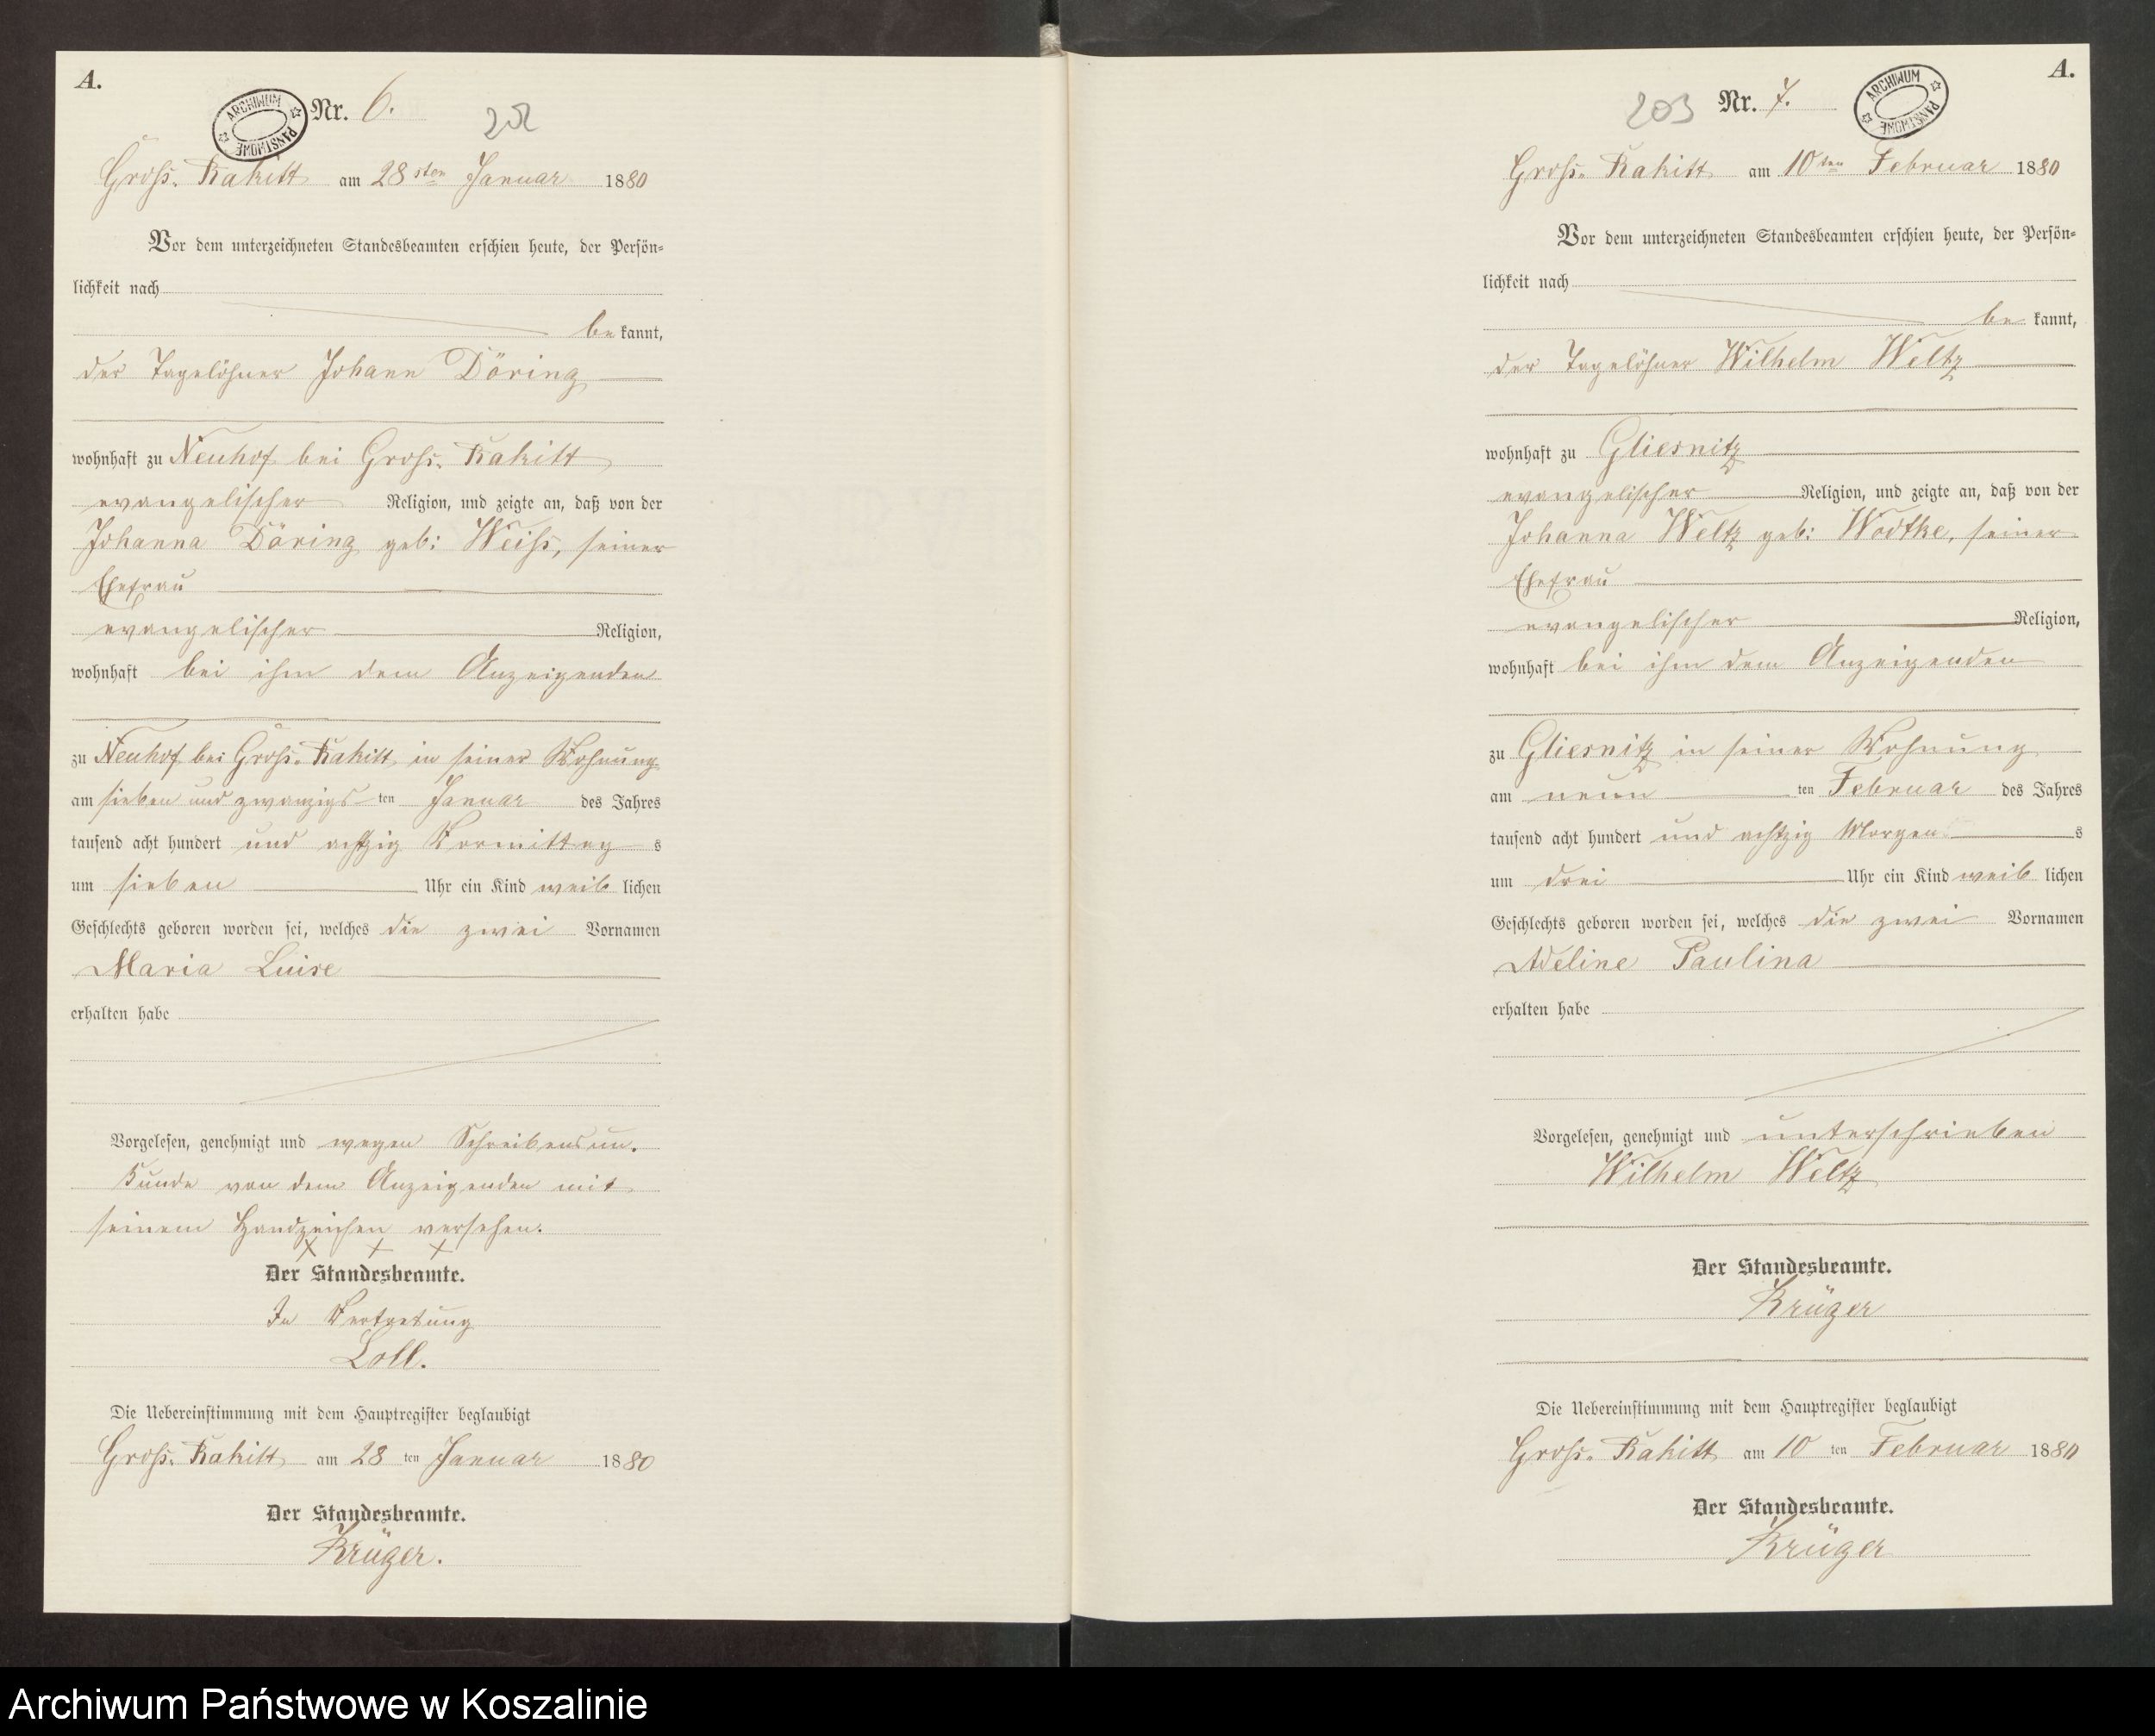 A.
ARCHIWUM PAŃSTWOWE
Nr. 6.
202
Gross. Rakitt am 28sten Januar 1880
Vor dem unterzeichneten Standesbeamten erschien heute, der Persön-
lichkeit nach
be kannt,
der Tagelöhner Johann Döring
wohnhaft zu Neuhof bei Gross. Rakitt
evangelischer Religion, und zeigte an, daß von der
Johanna Döring geb: Weiss, seiner
Ehefrau
evangelischer Religion,
wohnhaft bei ihm dem Anzeigenden
zu Neuhof bei Gross. Rakitt in seiner Wohnung
am sieben und zwanzigs ten Januar des Jahres
tausend acht hundert und achtzig Vormittag s
um sieben Uhr ein Kind weib lichen
Geschlechts geboren worden sei, welches die zwei Vornamen
Maria Luise
erhalten habe
Vorgelesen, genehmigt und wegen Schreibensun-
kunde von dem Anzeigenden mit
seinem Handzeichen versehen.
x x x
Der Standesbeamte.
In Vertretung
Loll.
Die Uebereinstimmung mit dem Hauptregister beglaubigt
Gross. Rakitt am 28 ten Januar 1880
Der Standesbeamte.
Krüger.
A.
203
Nr. 7.
ARCHIWUM PAŃSTWOWE
Gross. Rakitt am 10ten Februar 1880
Vor dem unterzeichneten Standesbeamten erschien heute, der Persön-
lichkeit nach
be kannt,
der Tagelöhner Wilhelm Weltz
wohnhaft zu Gliesnitz
evangelischer Religion, und zeigte an, daß von der
Johanna Weltz geb: Wodtke, seiner
Ehefrau
evangelischer Religion,
wohnhaft bei ihm dem Anzeigenden
zu Gliesnitz in seiner Wohnung
am neun ten Februar des Jahres
tausend acht hundert und achtzig Morgen s
um drei Uhr ein Kind weib lichen
Geschlechts geboren worden sei, welches die zwei Vornamen
Adeline Paulina
erhalten habe
Vorgelesen, genehmigt und unterschrieben
Wilhelm Weltz
Der Standesbeamte.
Krüger
Die Uebereinstimmung mit dem Hauptregister beglaubigt
Gross. Rakitt am 10 ten Februar 1880
Der Standesbeamte.
Krüger
Archiwum Państwowe w Koszalinie